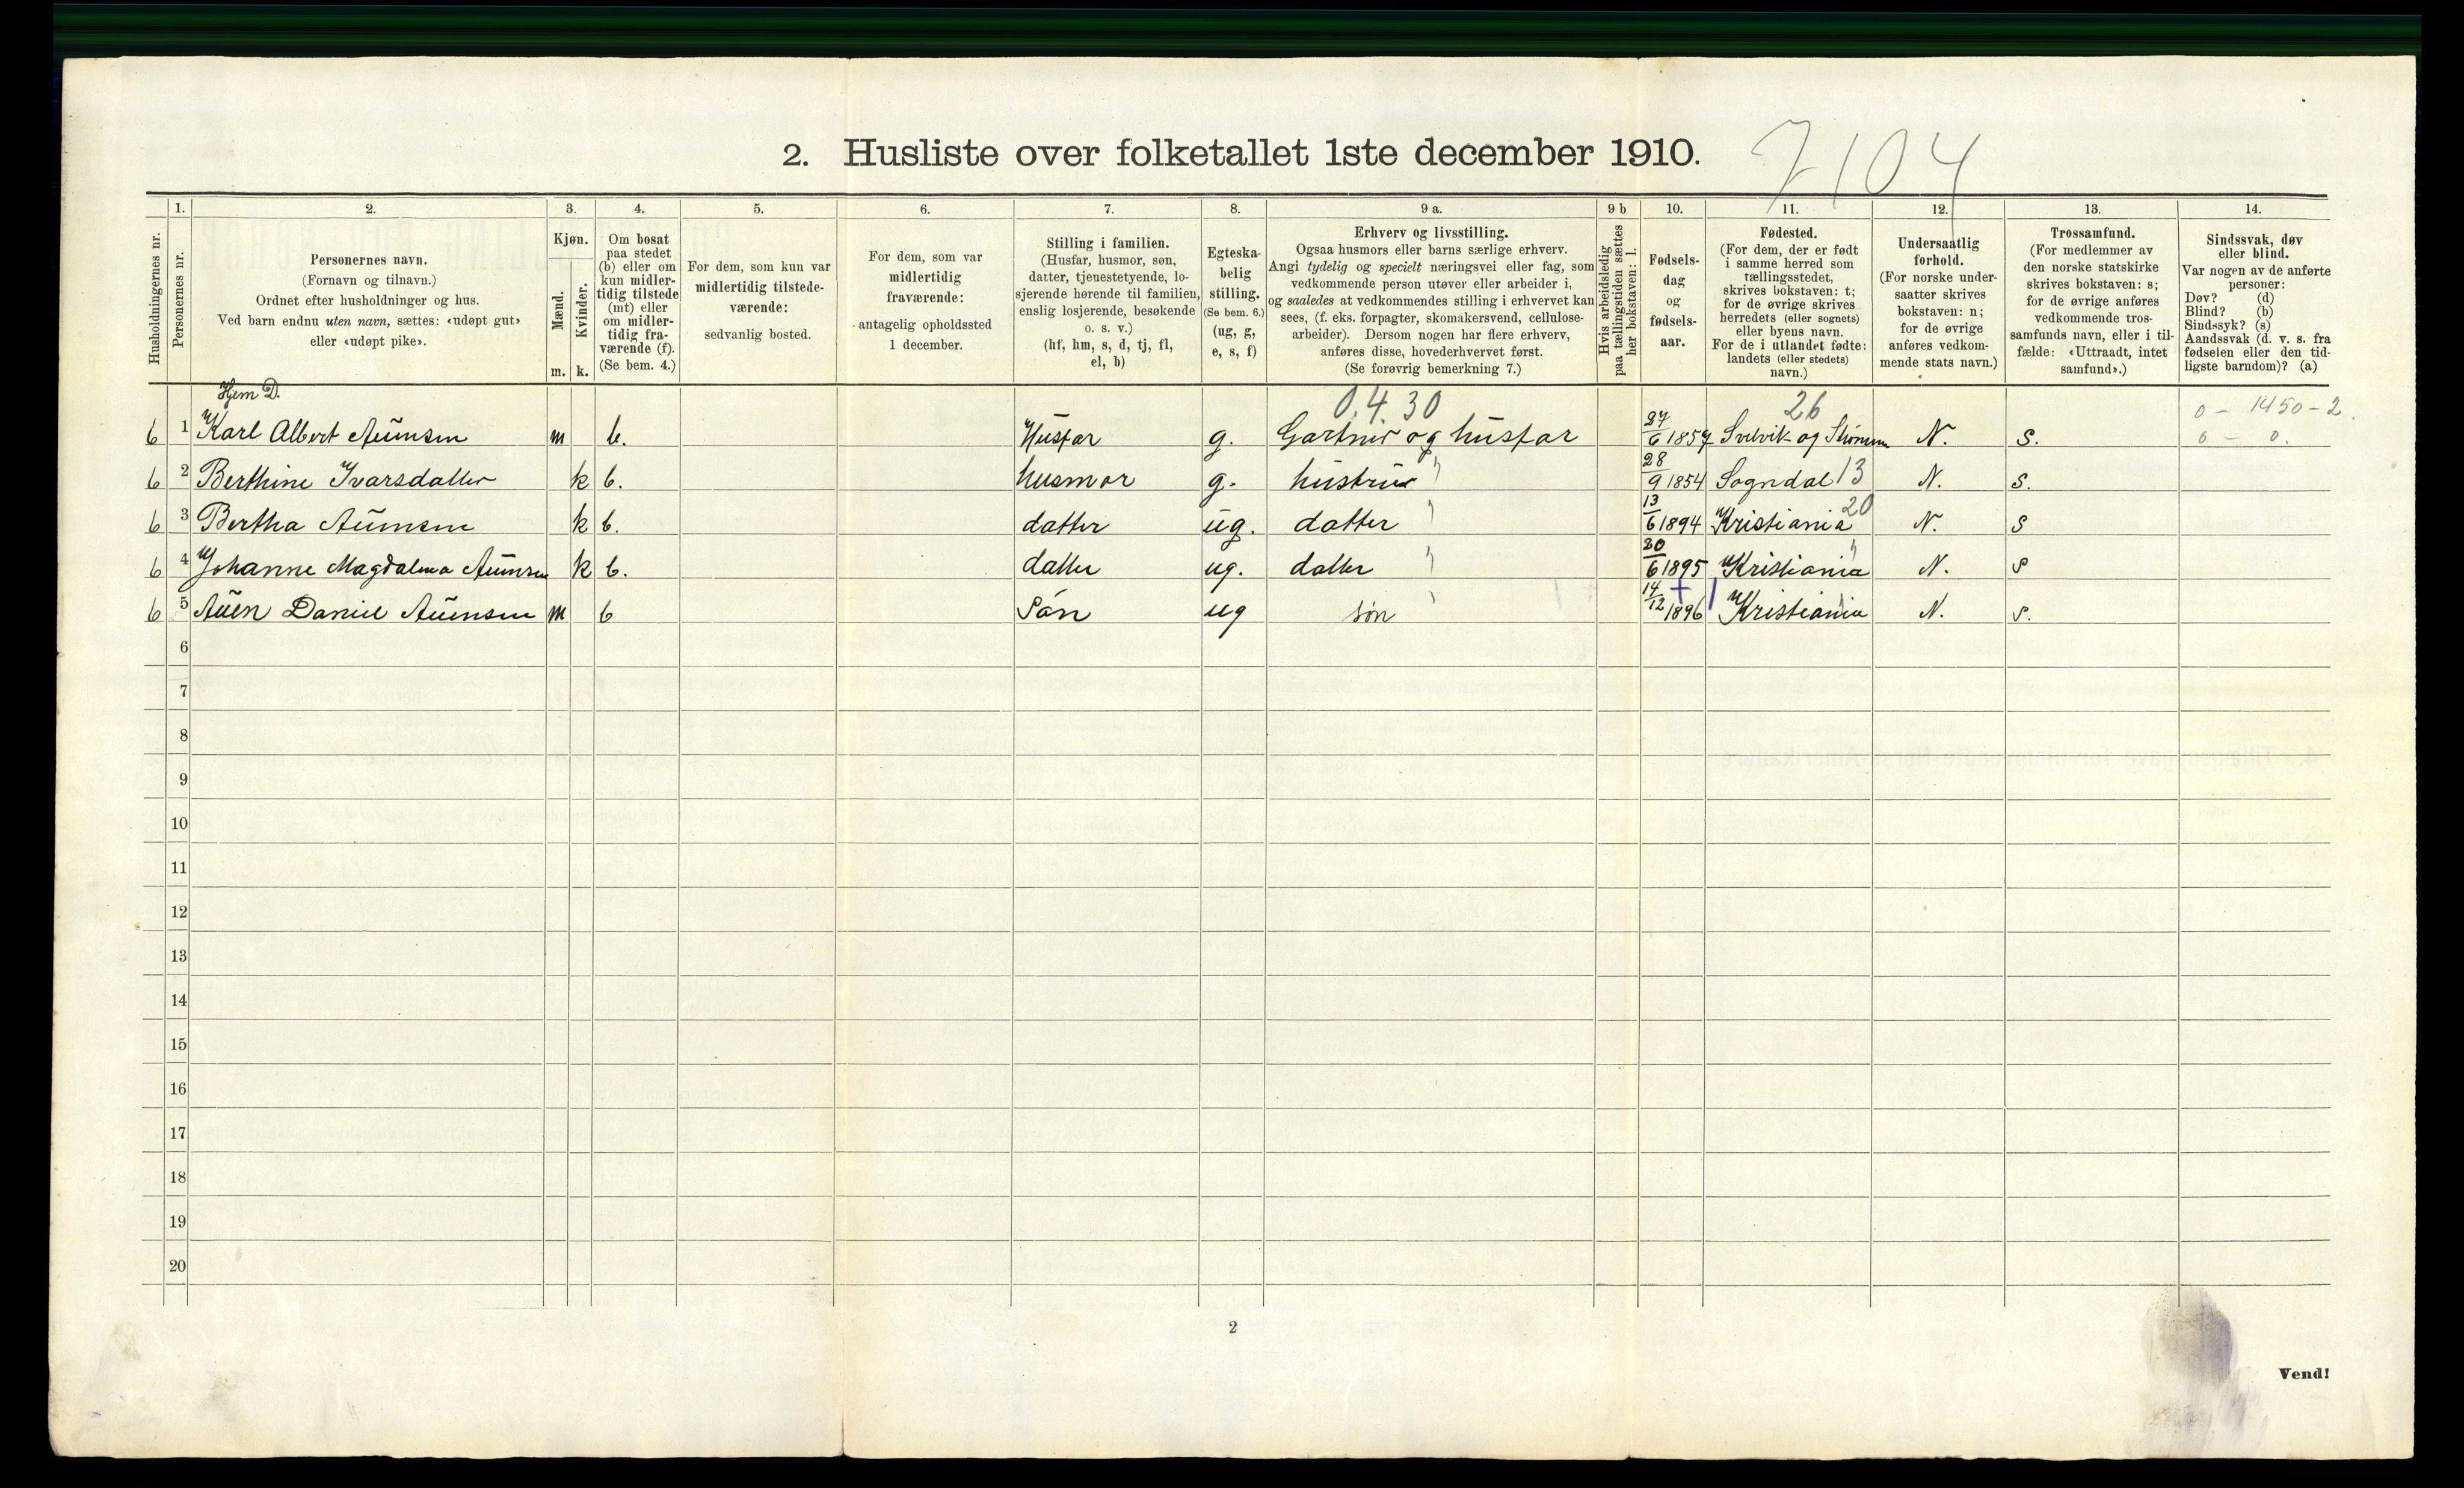 2. Husliste over folketallet 1ste december 1910.
7104
Husholdningernes nr.
1.
Personernes nr.
2.
Personernes navn.
(Fornavn og tilnavn.)
Ordnet efter husholdninger og hus.
Ved barn endnu uten navn, sættes: «udøpt gut»
eller «udøpt pike».
3.
Kjøn.
Mænd.
Kvinder.
m. k.
4.
Om bosat
paa stedet
(b) eller om
kun midler-
tidig tilstede
(mt) eller
om midler-
tidig fra-
værende (f).
(Se bem. 4.)
5.
For dem, som kun var
midlertidig tilstede-
værende:
sedvanlig bosted.
6.
For dem, som var
midlertidig
fraværende:
antagelig opholdssted
1 december.
7.
Stilling i familien.
(Husfar, husmor, søn,
datter, tjenestetyende, lo-
sjerende hørende til familien,
enslig losjerende, besøkende
o. s. v.)
(hf, hm, s, d, tj, fl,
el, b)
8.
Egteska-
belig
stilling.
(Se bem. 6.)
(ug, g,
e, s, f)
9 a.
Erhverv og livsstilling.
Ogsaa husmors eller barns særlige erhverv.
Angi tydelig og specielt næringsvei eller fag, som
vedkommende person utøver eller arbeider i,
og saaledes at vedkommendes stilling i erhvervet kan
sees, (f. eks. forpagter, skomakersvend, cellulose-
arbeider). Dersom nogen har flere erhverv,
anføres disse, hovederhvervet først.
(Se forøvrig bemerkning 7.)
9 b
Hvis arbeidsledig
paa tællingstiden sættes
her bokstaven: l.
10.
Fødsels-
dag
og
fødsels-
aar.
11.
Fødested.
(For dem, der er født
i samme herred som
tællingsstedet,
skrives bokstaven: t;
for de øvrige skrives
herredets (eller sognets)
eller byens navn.
For de i utlandet fødte:
landets (eller stedets)
navn.)
12.
Undersaatlig
forhold.
(For norske under-
saatter skrives
bokstaven: n;
for de øvrige
anføres vedkom-
mende stats navn.)
13.
Trossamfund.
(For medlemmer av
den norske statskirke
skrives bokstaven: s;
for de øvrige anføres
vedkommende tros-
samfunds navn, eller i til-
fælde: «Uttraadt, intet
samfund».)
14.
Sindssvak, døv
eller blind.
Var nogen av de anførte
personer:
Døv? (d)
Blind? (b)
Sindssyk? (s)
Aandssvak (d. v. s. fra
fødselen eller den tid-
ligste barndom)? (a)
Hjem D.
0.4.30 26 0 – 1450 – 2.
6 1 Karl Albert Aumsen m b. Husfar g. Gartner og husfar 27/6 1857 Svelvik og Strømm N. S. 0 – 0.
6 2 Berthine Ivarsdatter k b. husmor g. hustru " 28/9 1854 Sogndal 13 N. S.
6 3 Bertha Aumsen k b. datter ug. datter " 13/6 1894 Kristiania 20 N. S
6 4 Johanne Magdalena Aumsen k b. datter ug. datter " 20/6 1895 Kristiania " N. S
6 5 Auen Daniel Auensen m b Søn ug søn " 14/12 1896 Kristiania N. S.
6
7
8
9
10
11
12
13
14
15
16
17
18
19
20
2
Vend!